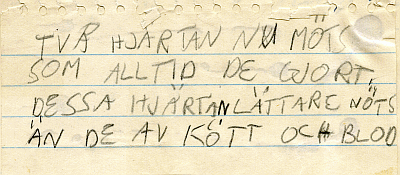 TVÅ HJÄRTAN NU MÖTS
SOM ALLTID DE GJORT,
DESSA HJÄRTAN LÄTTARE NÖTS
ÄN DE AV KÖTT OCH BLOD